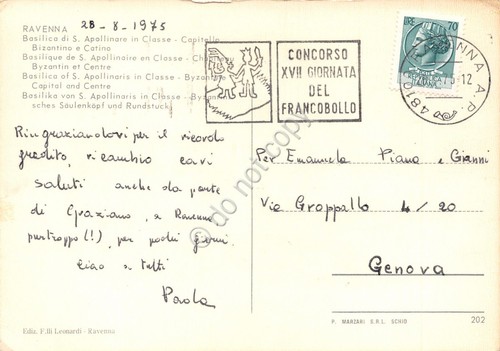 28-8-1975
RAVENNA
Basilica di S. Apollinare in Classe - Capitello
Bizantino e Catino
Basilique de S. Apollinaire en Classe -
Byzantin et Centre
Basilica of S. Apollinaris in Classe - Byzantine
Capital and Centre
Basilika von S. Apollinaris in Classe -
sches Säulenkopf und Rundstuck
CONCORSO
XVII GIORNATA
DEL
FRANCOBOLLO
LIRE 70
RAVENNA A.P.
Ringraziandovi per il ricordo
gradito, ricambio cari
saluti anche da parte
di Graziano, a Ravenna
purtroppo (!), per pochi giorni
Ciao a tutti
Paola
Per Emanuela Piana e Gianni
Via Groppallo 4/20
Genova
Ediz. F.lli Leonardi - Ravenna
P. MARZARI S.R.L. SCHIO
202
do not copy